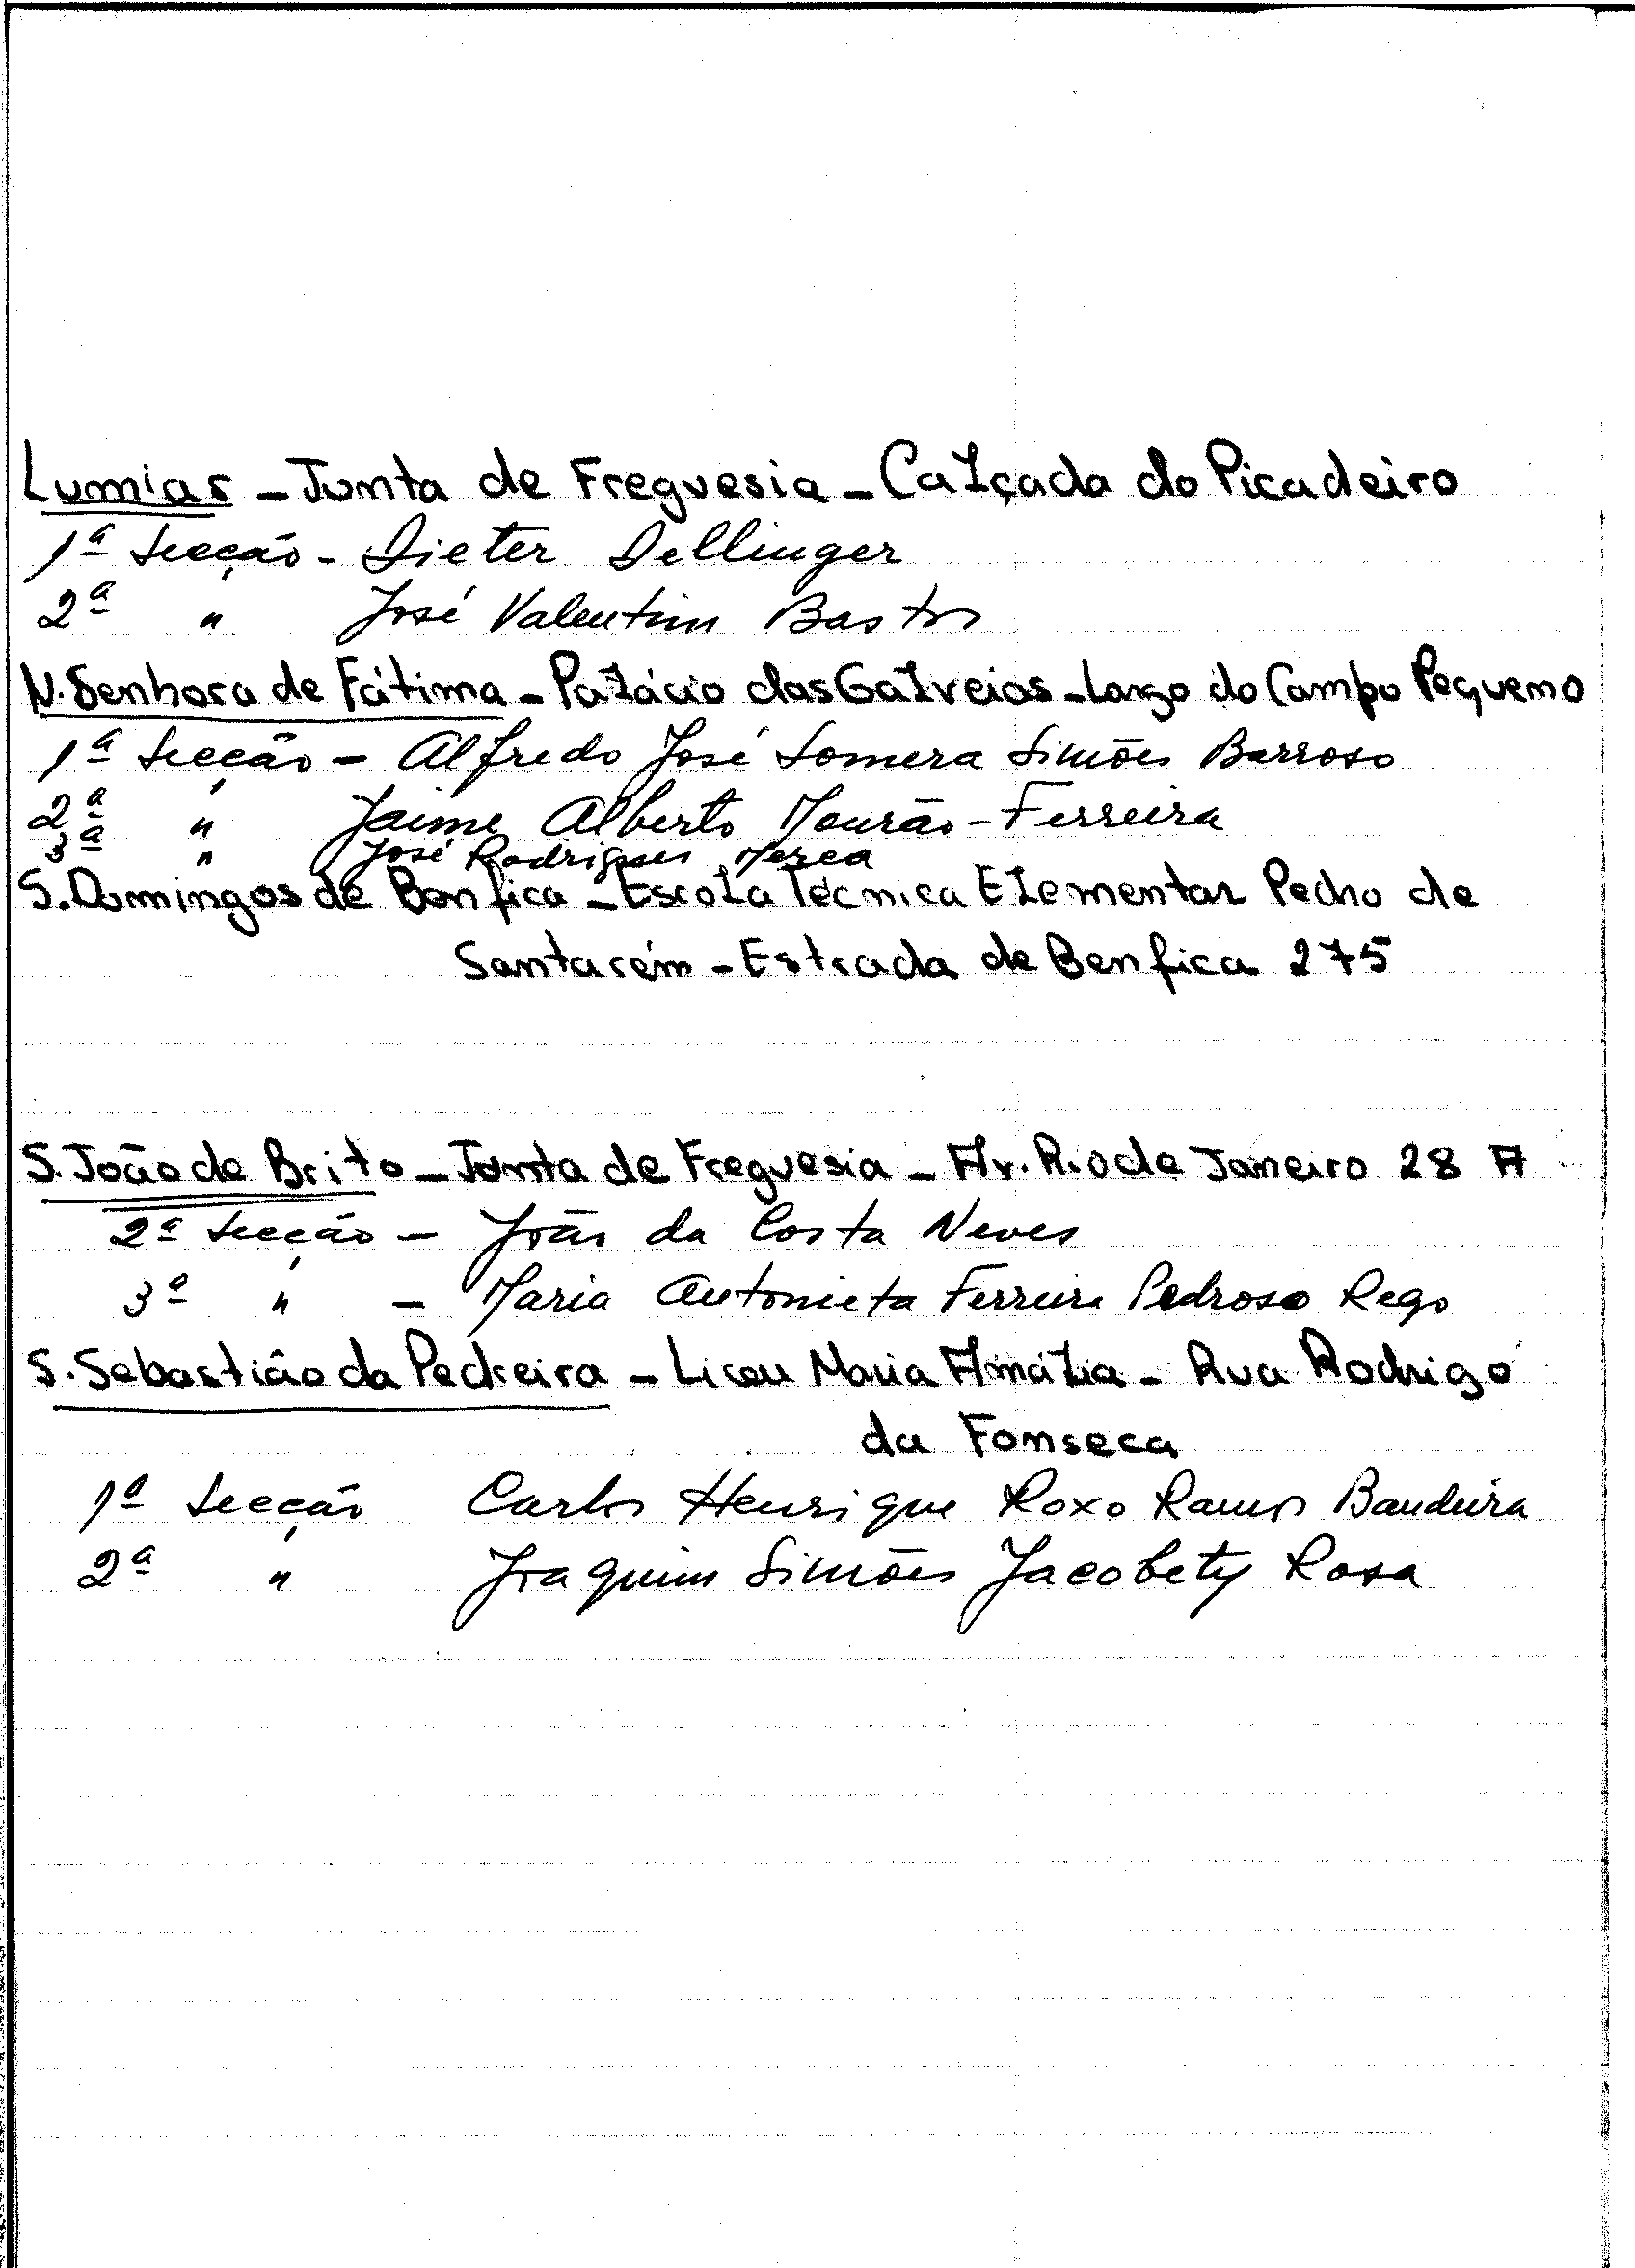 Lumiar - Junta de Freguesia - Calçada do Picadeiro
1ª Secção - Dieter Dellinger
2ª " José Valentim Bastos
N. Senhora de Fátima - Palácio das Galveias - Largo do Campo Pequeno
1ª Secção - Alfredo José Somera Simões Barroso
2ª " Jaime Alberto Mourão-Ferreira
3ª " José Rodrigues
S. Domingos de Benfica - Escola Técnica Elementar Pedro de
Santarém - Estrada de Benfica 275
S. João de Brito - Junta de Freguesia - Av. Rio de Janeiro 28 A
2ª Secção - João da Costa Neves
3ª " - Maria Antonieta Ferreira Pedroso Rego
S. Sebastião da Pedreira - Liceu Maria Amália - Rua Rodrigo
da Fonseca
1ª Secção Carlos Henrique Roxo Ramos Bandeira
2ª " Joaquim Simões Jacobety Rosa